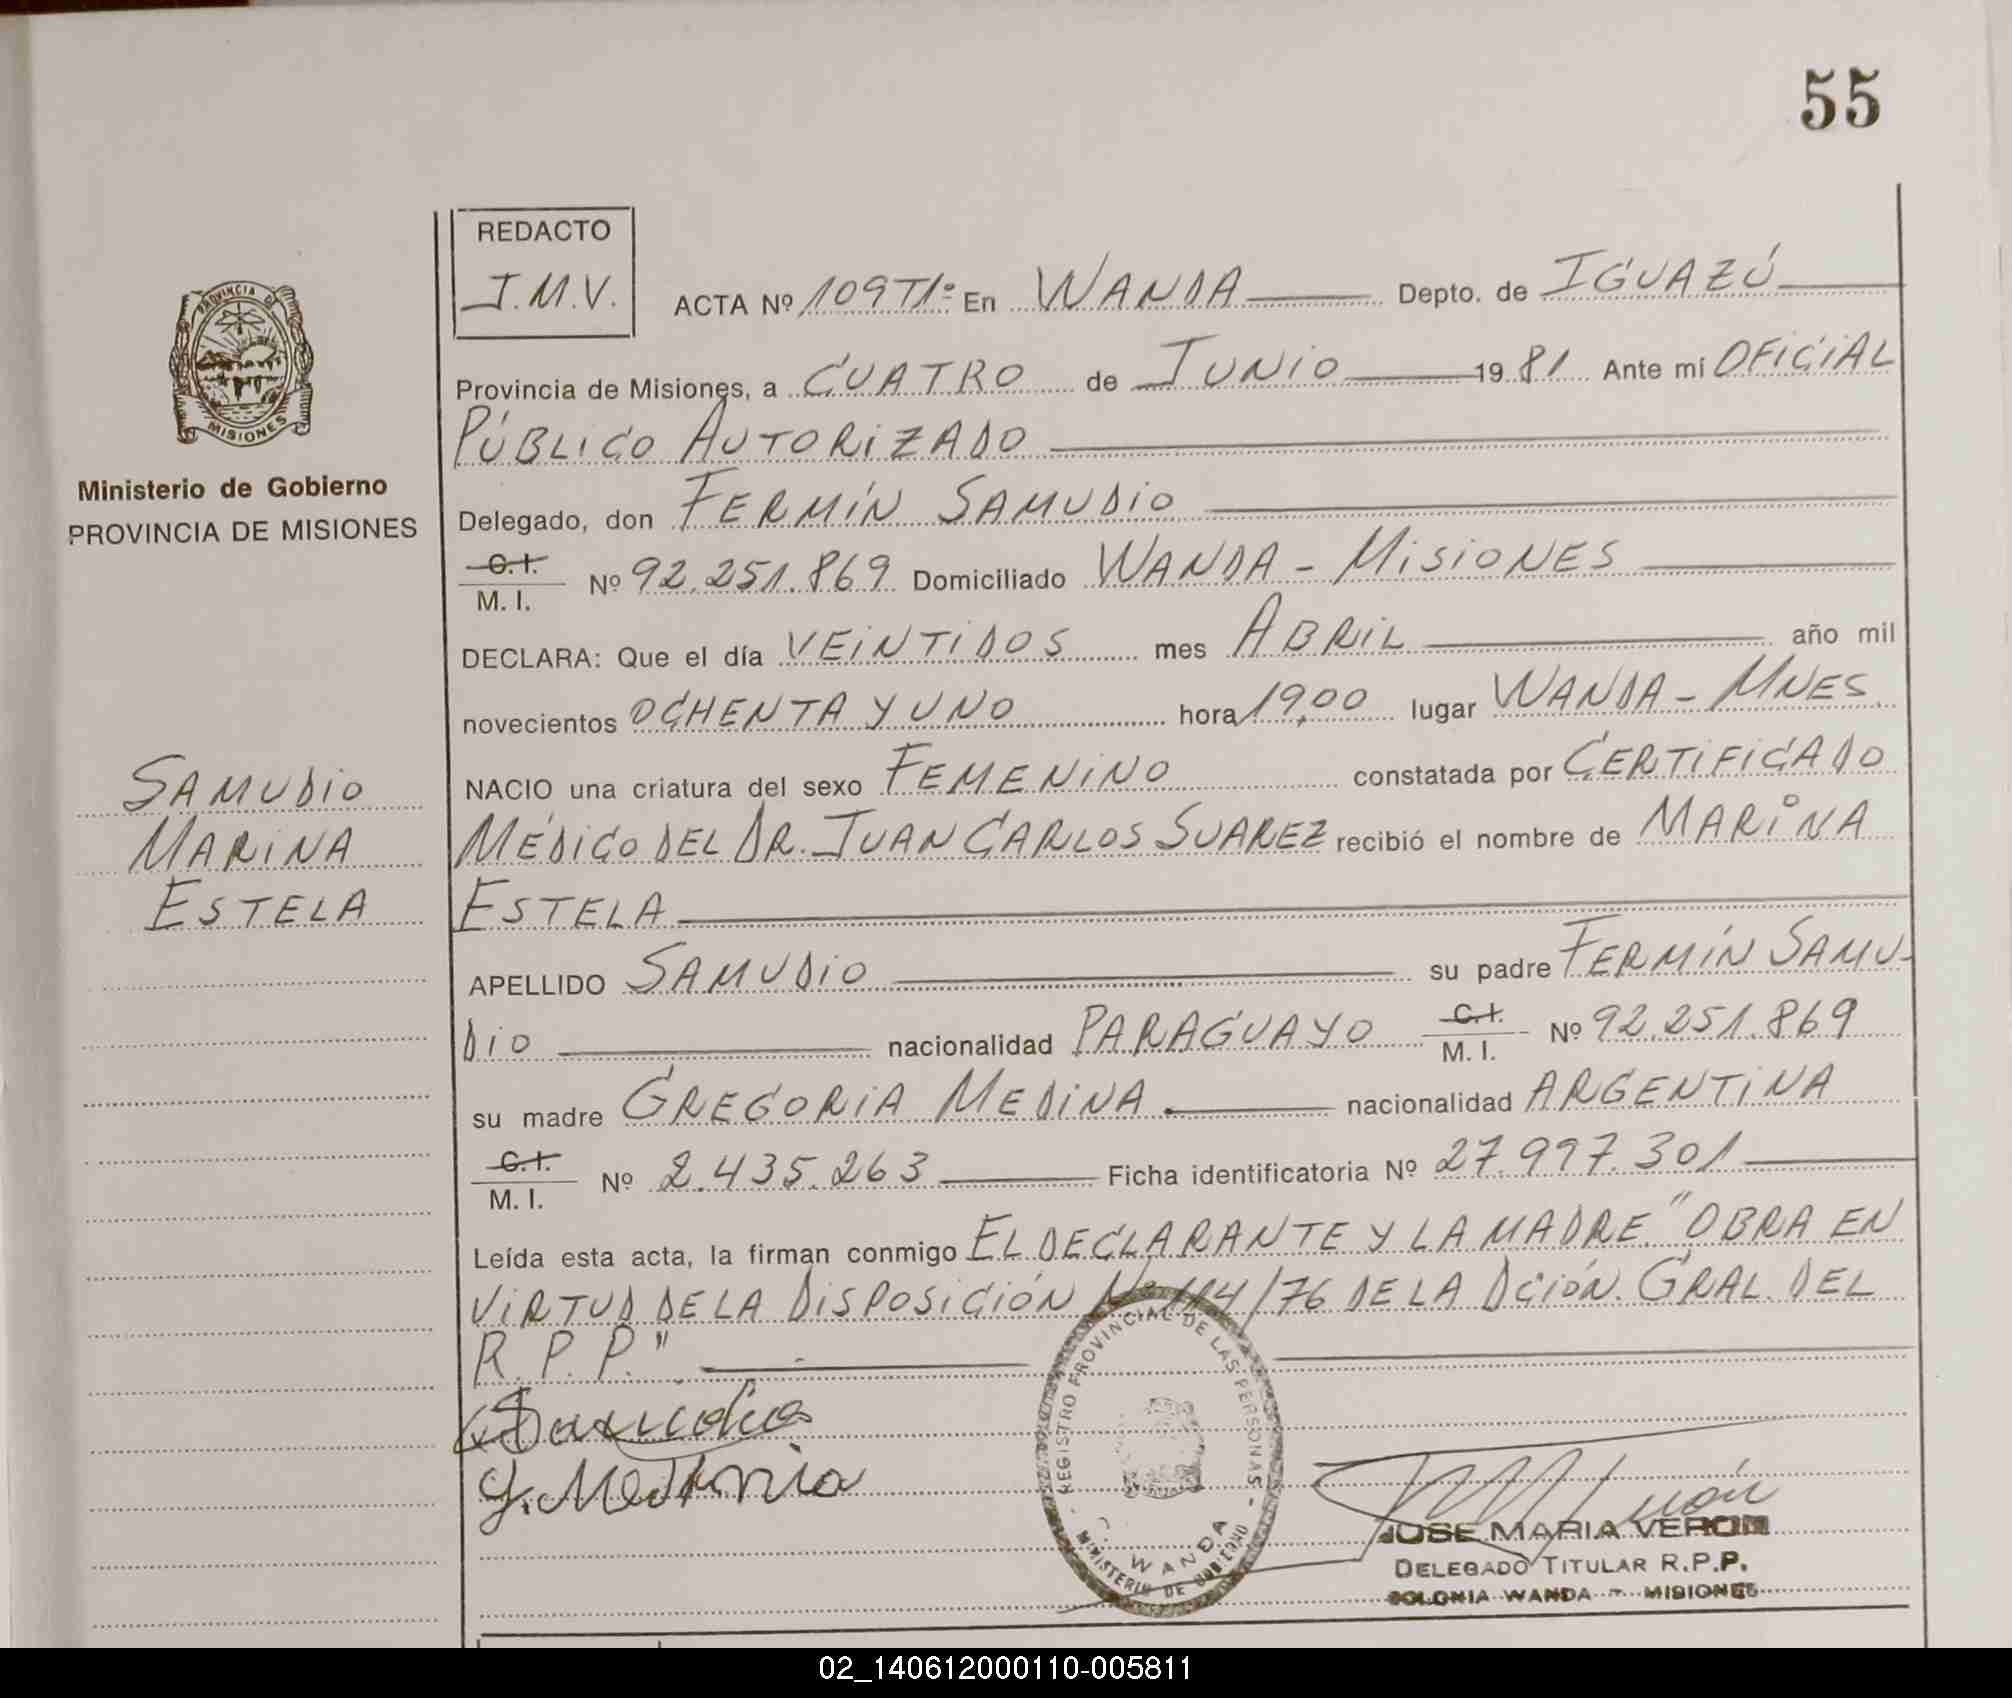 55
REDACTO
J.M.V.
ACTA Nº 109T1º En WANDA Depto. de IGUAZÚ
PROVINCIA DE
MISIONES
Provincia de Misiones, a CUATRO de JUNIO 1981 Ante mí OFICIAL
PÚBLICO AUTORIZADO
Ministerio de Gobierno
PROVINCIA DE MISIONES
Delegado, don FERMÍN SAMUDIO
C.I.
M. I. Nº 92.251.869 Domiciliado WANDA - MISIONES
DECLARA: Que el día VEINTIDOS mes ABRIL año mil
novecientos OCHENTA Y UNO hora 19,00 lugar WANDA - MNES
SAMUDIO
MARINA
ESTELA
NACIO una criatura del sexo FEMENINO constatada por CERTIFICADO
MÉDICO DEL DR. JUAN CARLOS SUAREZ recibió el nombre de MARINA
ESTELA
APELLIDO SAMUDIO su padre FERMÍN SAMU-
DIO nacionalidad PARAGUAYO C.I. M. I. Nº 92.251.869
su madre GREGORIA MEDINA nacionalidad ARGENTINA
C.I.
M. I. Nº 2.435.263 Ficha identificatoria Nº 27.997.301
Leída esta acta, la firman conmigo EL DECLARANTE Y LA MADRE. "OBRA EN
VIRTUD DE LA DISPOSICIÓN Nº 114/76 DE LA DCIÓN. GRAL. DEL
R. P. P."
Samudio
G. Medina
REGISTRO PROVINCIAL DE LAS PERSONAS
WANDA
MINISTERIO DE GOBIERNO
JOSE MARIA VERON
DELEGADO TITULAR R.P.P.
COLONIA WANDA - MISIONES
02_140612000110-005811